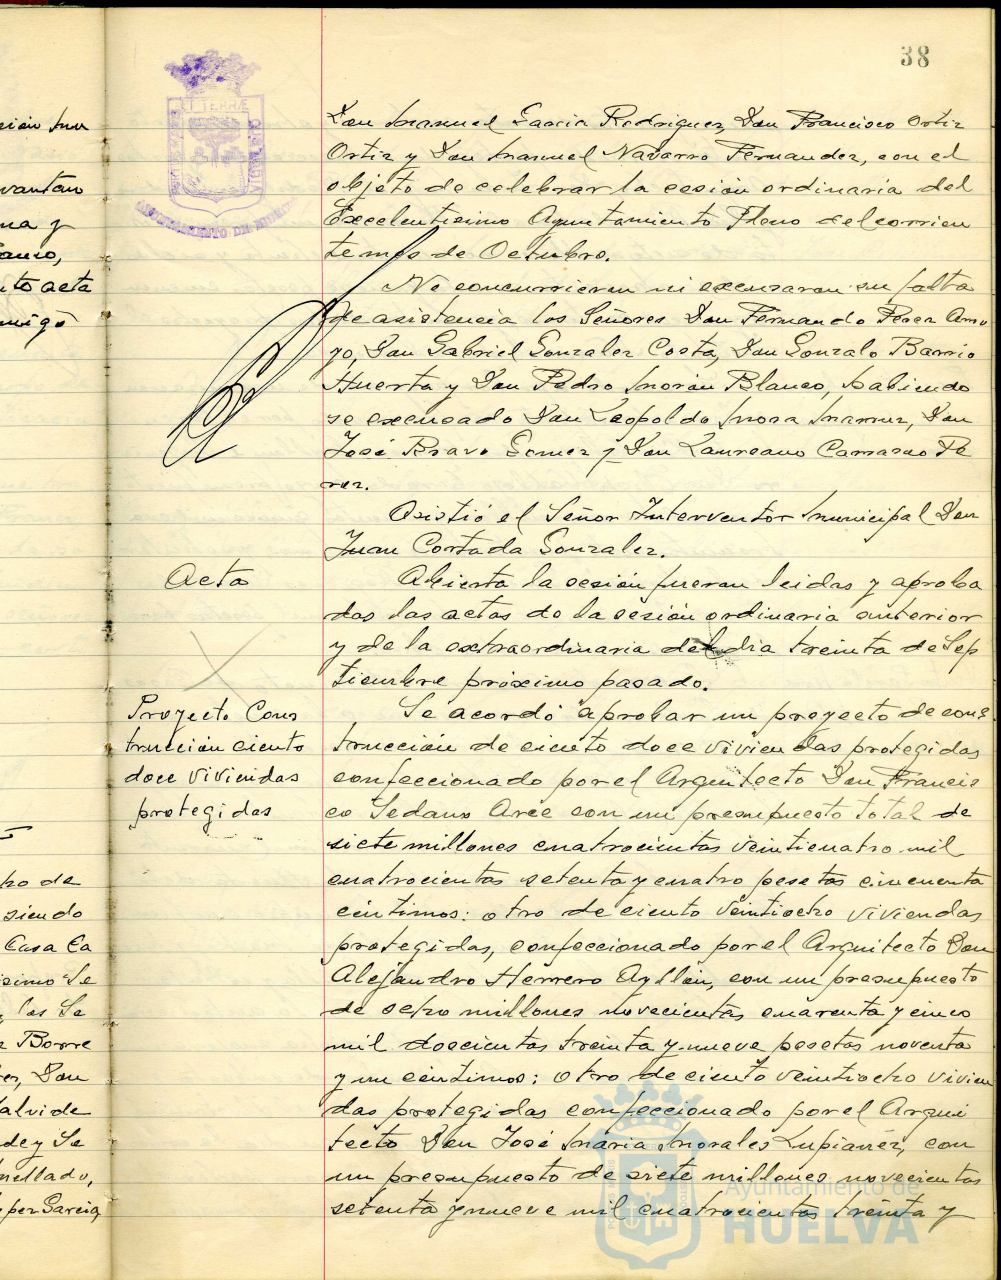 38
Don Manuel Garcia Rodriguez, Don Francisco Ortiz
Ortiz y Don Manuel Navarro Fernandez, con el
objeto de celebrar la sesión ordinaria del
Excelentisimo Ayuntamiento Pleno del corrien
te mes de Octubre.
No concurrieron ni excusaron su falta
de asistencia los Señores Don Fernando Perez Arro
yo, Don Gabriel Gonzalez Costa, Don Gonzalo Barrio
Huerta y Don Pedro Morán Blanco, habiendo
se excusado Don Leopoldo Mora Don
José Bravo Gomez y Don Laureano Carrasco Pe
rez.
Asistió el Señor Interventor Municipal Don
Juan Cortada Gonzalez.
Acta
Abierta la sesión fueron leidas y aproba
das las actas de la sesión ordinaria anterior
y de la extraordinaria del dia treinta de Sep
tiembre próximo pasado.
Proyecto Cons
trucción ciento
doce viviendas
protegidas
Se acordó aprobar un proyecto de cons
trucción de ciento doce viviendas protegidas
confeccionado por el Arquitecto Don Francis
co Sedano Arce con un presupuesto total de
siete millones cuatrocientas veinticuatro mil
cuatrocientas setenta y cuatro pesetas cincuenta
céntimos: otro de ciento veintiocho viviendas
protegidas, confeccionado por el Arquitecto Don
Alejandro Herrero Ayllón, con un presupuesto
de ocho millones novecientas cuarenta y cinco
mil doscientas treinta y nueve pesetas noventa
y un céntimos; otro de ciento veintiocho vivien
das protegidas confeccionado por el Arqui
tecto Don José Maria Morales Lupiañez, con
un presupuesto de siete millones novecientas
setenta y nueve mil cuatrocientas treinta y
vantan
na y
to acta
migo
siendo
Casa Ca
simo Se
las Se
Borre
Don
de y Se
per Garcia
AYUNTAMIENTO DE HUELVA
Ayuntamiento de
HUELVA